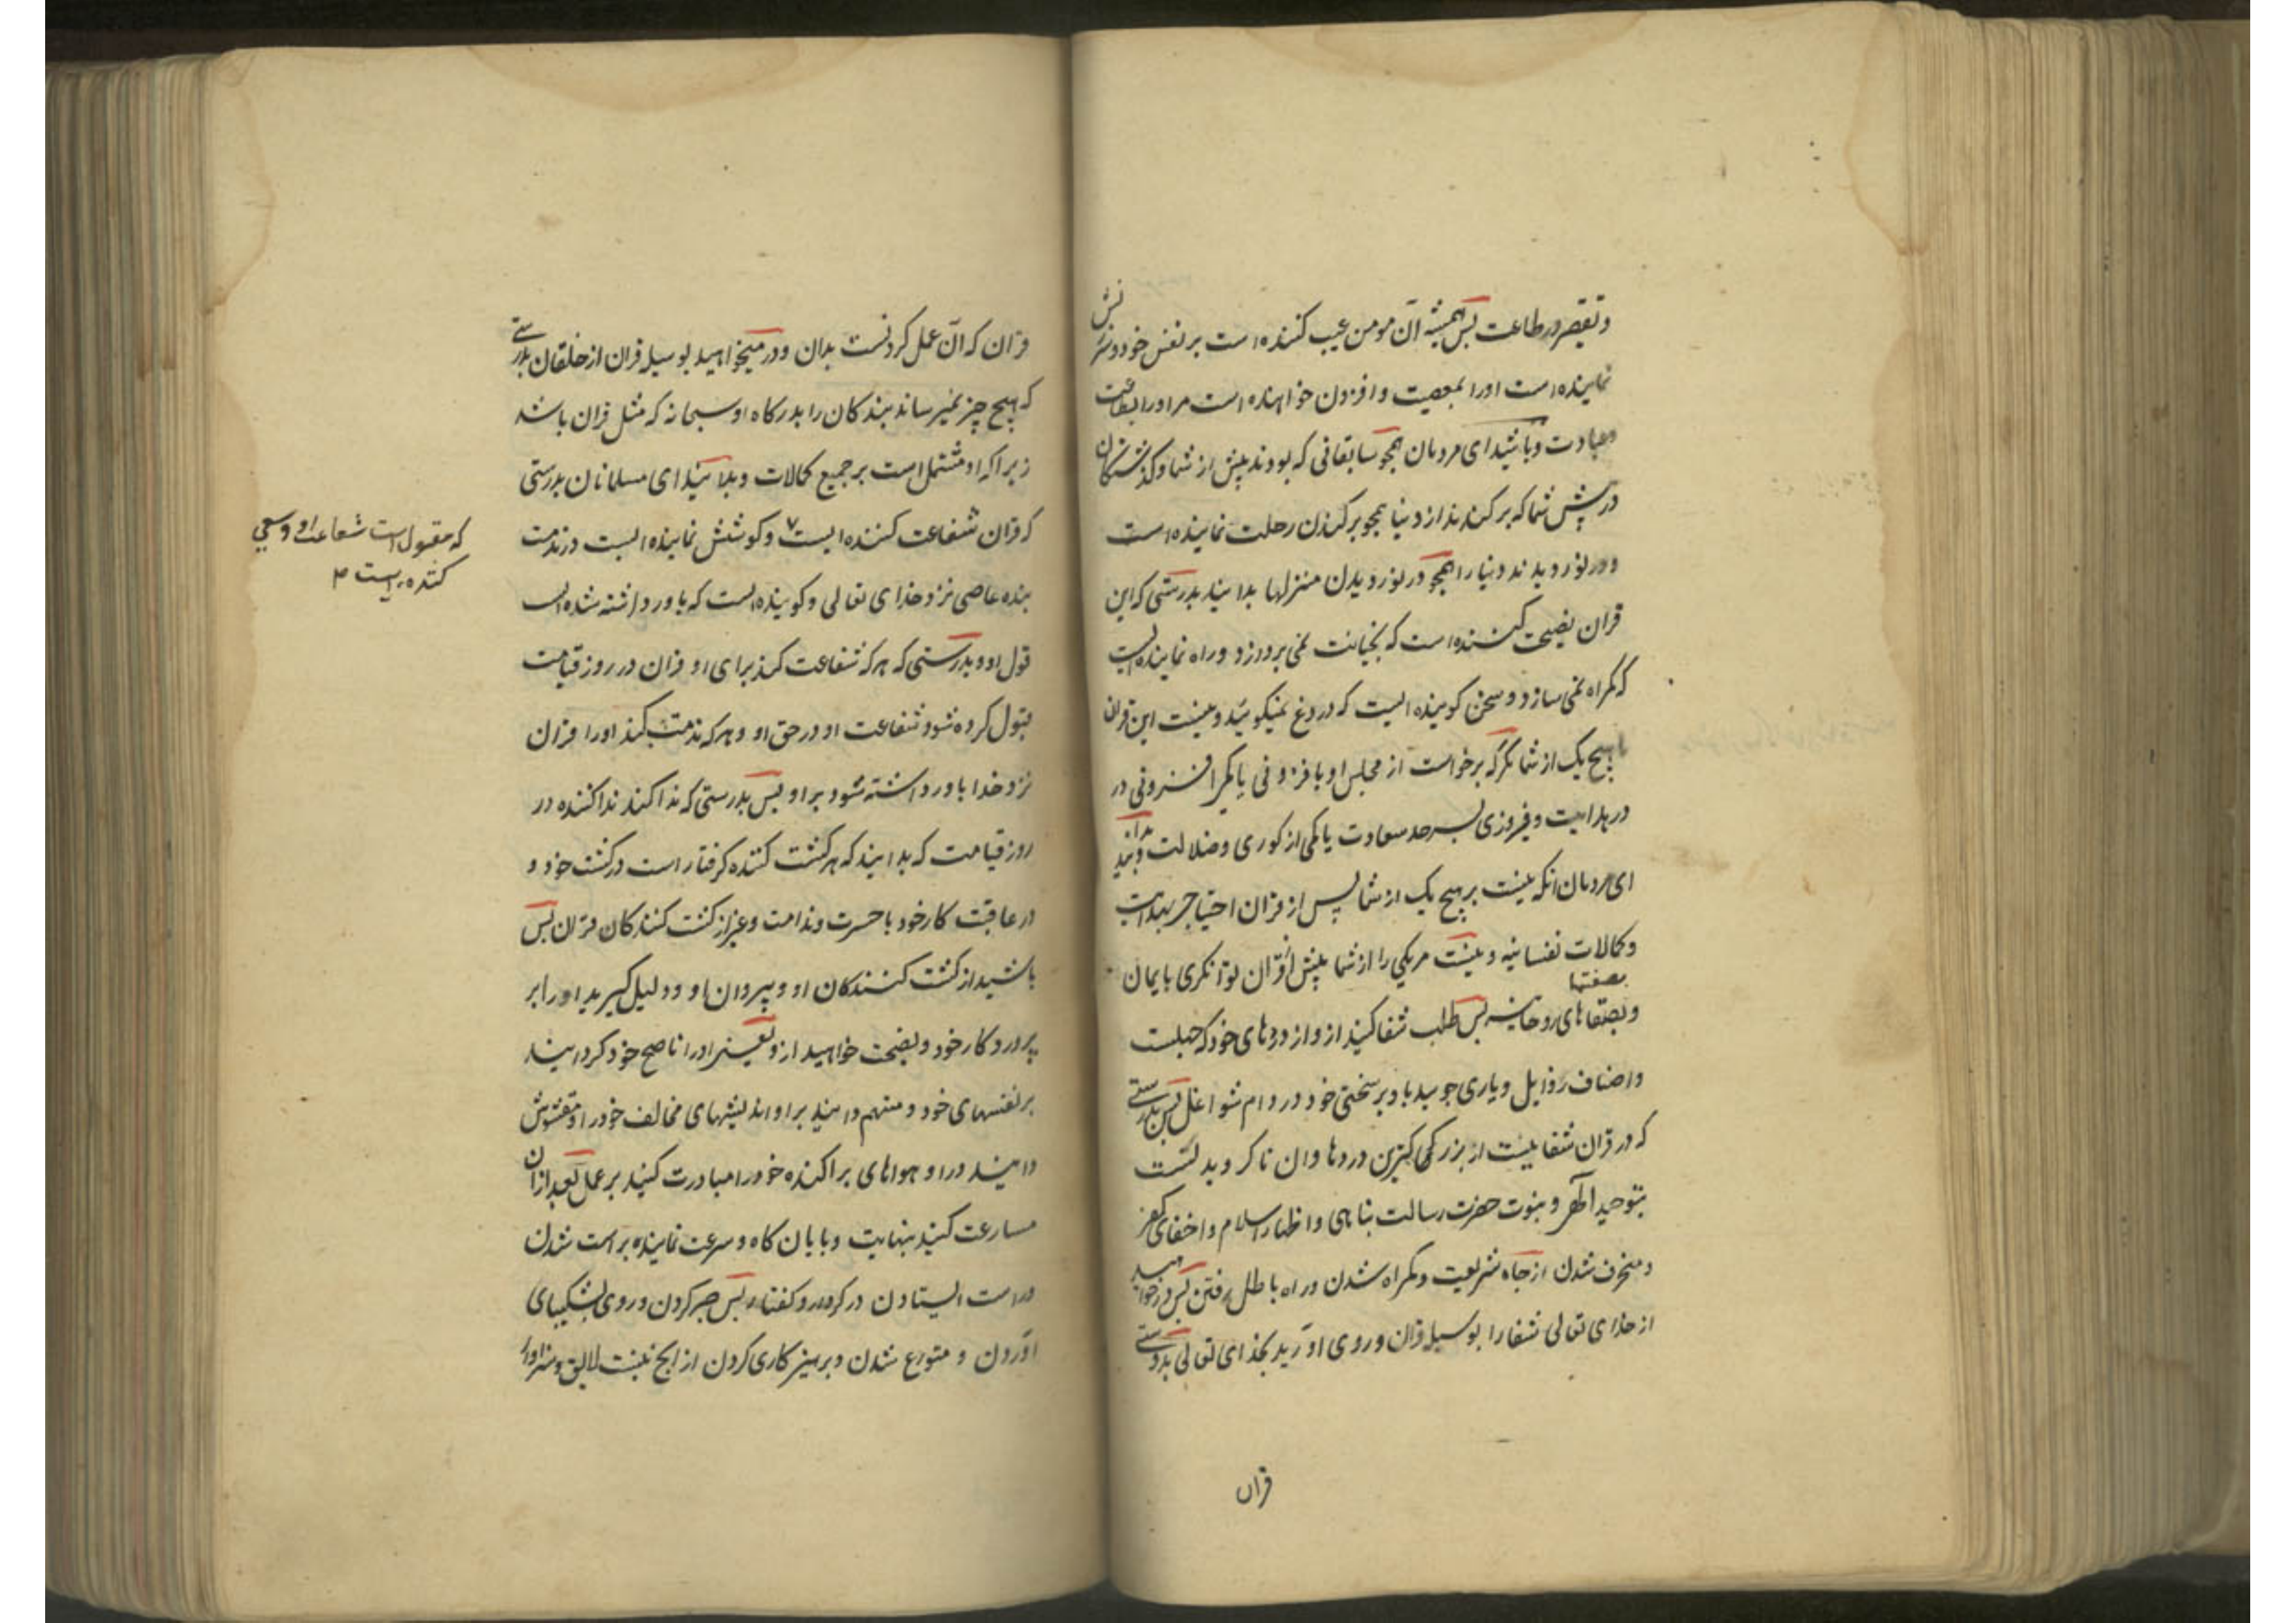 و تقصیر در طاعت پس همیشه آن مومن عیب کننده است بر نفس خود و سرزنش
نماینده است او را بمعصیت و افزون خواهنده است مر او را بطاعت
و عبادت و باشید ای مردمان همچو سابقانی که بودند پیش از شما و گذشتگان
در پیش شما که برکندند از دنیا همچو برکندن رحلت نماینده است
و در نوردیدند دنیا را همچو در نوردیدن منزلها بدانید بدرستی که این
قران نصیحت کننده است که بخیانت نمی پردازد و راه نماینده ایست
که گمراه نمی سازد و سخن گوینده ایست که دروغ نمیگوید و ننشست این قران
با هیچ یک از شما مگر که برخواست از مجلس او با فزونی یا کمی افزونی در
در هدایت و فیروزی بسرحد سعادت یا کمی از کوری و ضلالت و بدانید
ای مردمان آنکه نیست بر هیچ یک از شما پس از قران احتیاجی بهدایت
و کمالات نفسانیه و نیست مر یکی را از شما پیش از قران توانگری بایمان
بصفتها
و بصفتهای روحانیه پس طلب شفا کنید ازو از دردهای خود که جهلست
و اصناف رذایل و یاری جویید باو بر سختی خود در دوام شواغل پس بدرستی
که در قران شفائیست از بزرگی بزرگترین دردها و ان ناگرویدنست
بتوحید اله و نبوت حضرت رسالت پناهی و اظهار اسلام و اخفای کفر
و منحرف شدن از جاه شریعت و گمراه شدن و راه باطل رفتن پس درخواهید
از خدای تعالی شفا را بوسیله قران و روی اورید بخدای تعالی بدوستی
قران
قران که آن عمل کردنست بدان و در میخواهید بوسیله قران از خلقان بدرستی
که هیچ چیز نمیرساند بندگان را بدرگاه او سبحانه که مثل قران باشد
زیرا که او مشتمل است بر جمیع کمالات و بدانید ای مسلمانان بدرستی
که قران شفاعت کننده ایست و کوشش نماینده ایست در ندمت
بنده عاصی نزد خدای تعالی و گوینده ایست که باور داشته شده است
قول او و بدرستی که هر که شفاعت کند برای او قران در روز قیامت
قبول کرده شود شفاعت او در حق او و هر که مذمت کند او را قران
نزد خدا باور داشته شود بر او پس بدرستی که ندا کند ندا کننده در
روز قیامت که بدانید که هر کشت کننده گرفتار است در کشت خود و
در عاقبت کار خود با حسرت و ندامت و غیر از کشت کنندگان قران پس
باشید از کشت کنندگان او و پیروان او و دلیل گیرید او را بر
پروردگار خود و نصیحت خواهید ازو یعنی او را ناصح خود گردانید
بر نفسهای خود و متهم دانید بر او اندیشهای مخالف خود را و مغشوش
دانید در او هواهای پراکنده خود را مبادرت کنید بر عمل بعد از ان
مسارعت کنید بنهایت و پایان گاه و سرعت نماینده براست شدن
و راست ایستادن در کردار و گفتار پس صبر کردن و روی بشکیبای
آوردن و متورع شدن و پرهیز کاری کردن از انچ نیست لایق و سزاوار
که مقبول است شفاعت او و سعی
کننده ایست